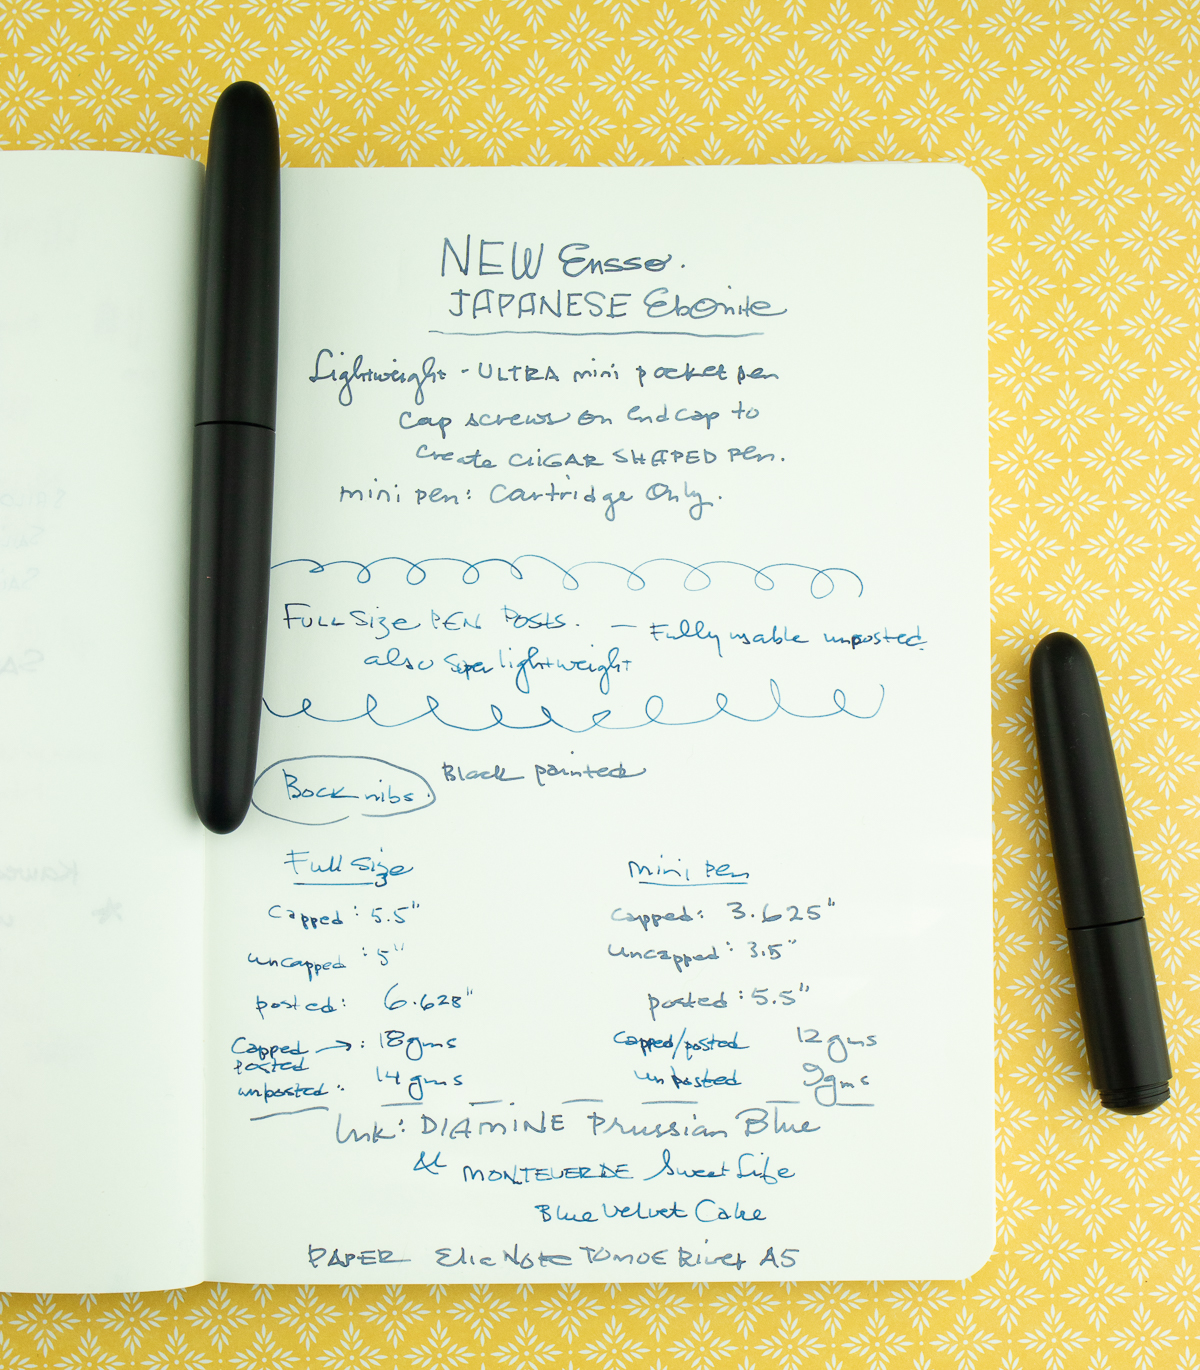 NEW Ensso.
JAPANESE Ebonite
Lightweight - ULTRA mini pocket pen
Cap screws on end cap to
create CIIGAR SHAPED pen.
mini pen: Cartridge Only.
FULL Size PEN Posts. — Fully usable unposted
also super lightweight
Bock nibs. Black painted
Full Size
capped: 5.5"
uncapped: 5"
posted: 6.628"
Capped → : 18gms
posted
unposted: 14 gms
mini pen
capped: 3.625"
Uncapped: 3.5"
posted: 5.5"
capped/posted 12 gms
unposted 9gms
Ink: DIAMINE Prussian Blue
& MONTEVERDE Sweet Life
Blue Velvet Cake
PAPER Elia Note TOMOE River A5